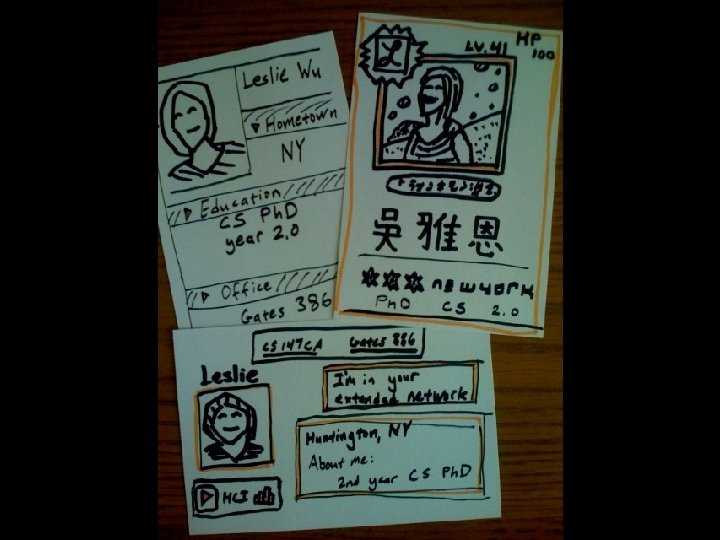 Leslie Wu
Hometown
NY
Education
CS PhD
year 2.0
Office
Gates 386
L
LV.41
HP
100
吳雅恩
NEWYORK
PhD CS 2.0
CS147CA Gates 386
Leslie
I'm in your
extended network
Huntington, NY
About me:
2nd year CS PhD
HCI